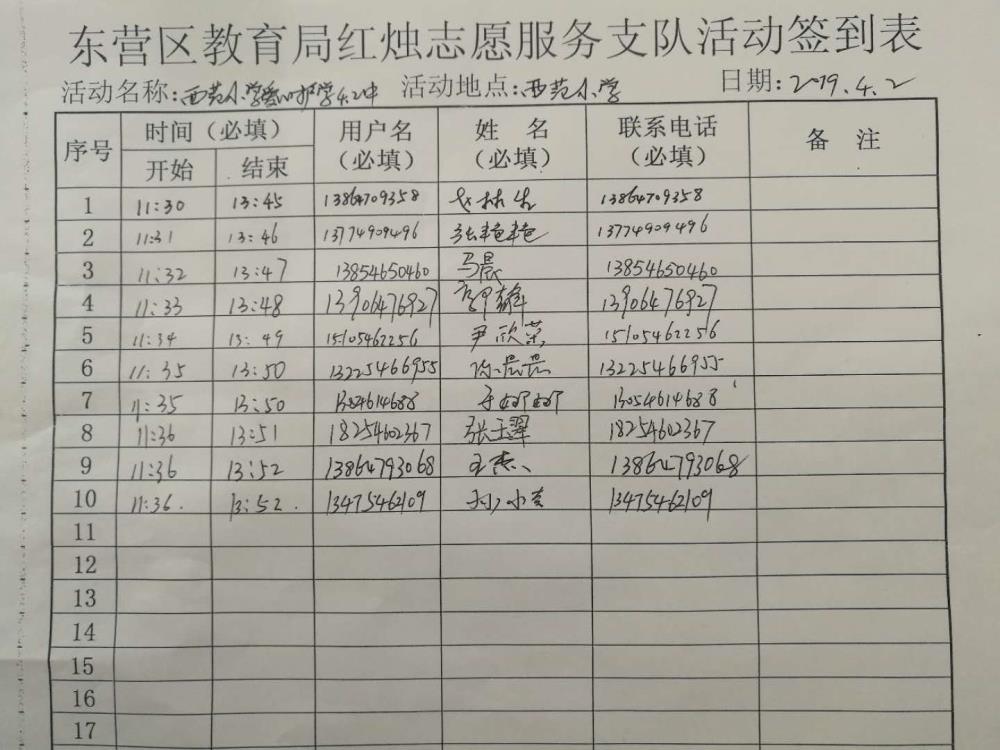 东营区教育局红烛志愿服务支队活动签到表
活动名称:西苑小学爱心护学4.2中 活动地点:西苑小学 日期:2019.4.2
序号 时间（必填） 用户名（必填） 姓 名（必填） 联系电话（必填） 备 注
开始 结束
1 11:30 13:45 13864709358 13864709358
2 11:31 13:46 13774909496 张艳艳 13774909496
3 11:32 13:47 13854650460 马晨 13854650460
4 11:33 13:48 13906476927 13906476927
5 11:34 13:49 15105462256 尹欣荣 15105462256
6 11:35 13:50 13225466955 13225466955
7 11:35 13:50 13054614688 于娜娜 13054614688
8 11:36 13:51 18254602367 张玉翠 18254602367
9 11:36 13:52 13864793068 王杰 13864793068
10 11:36. 13:52. 13475462109 13475462109
11
12
13
14
15
16
17